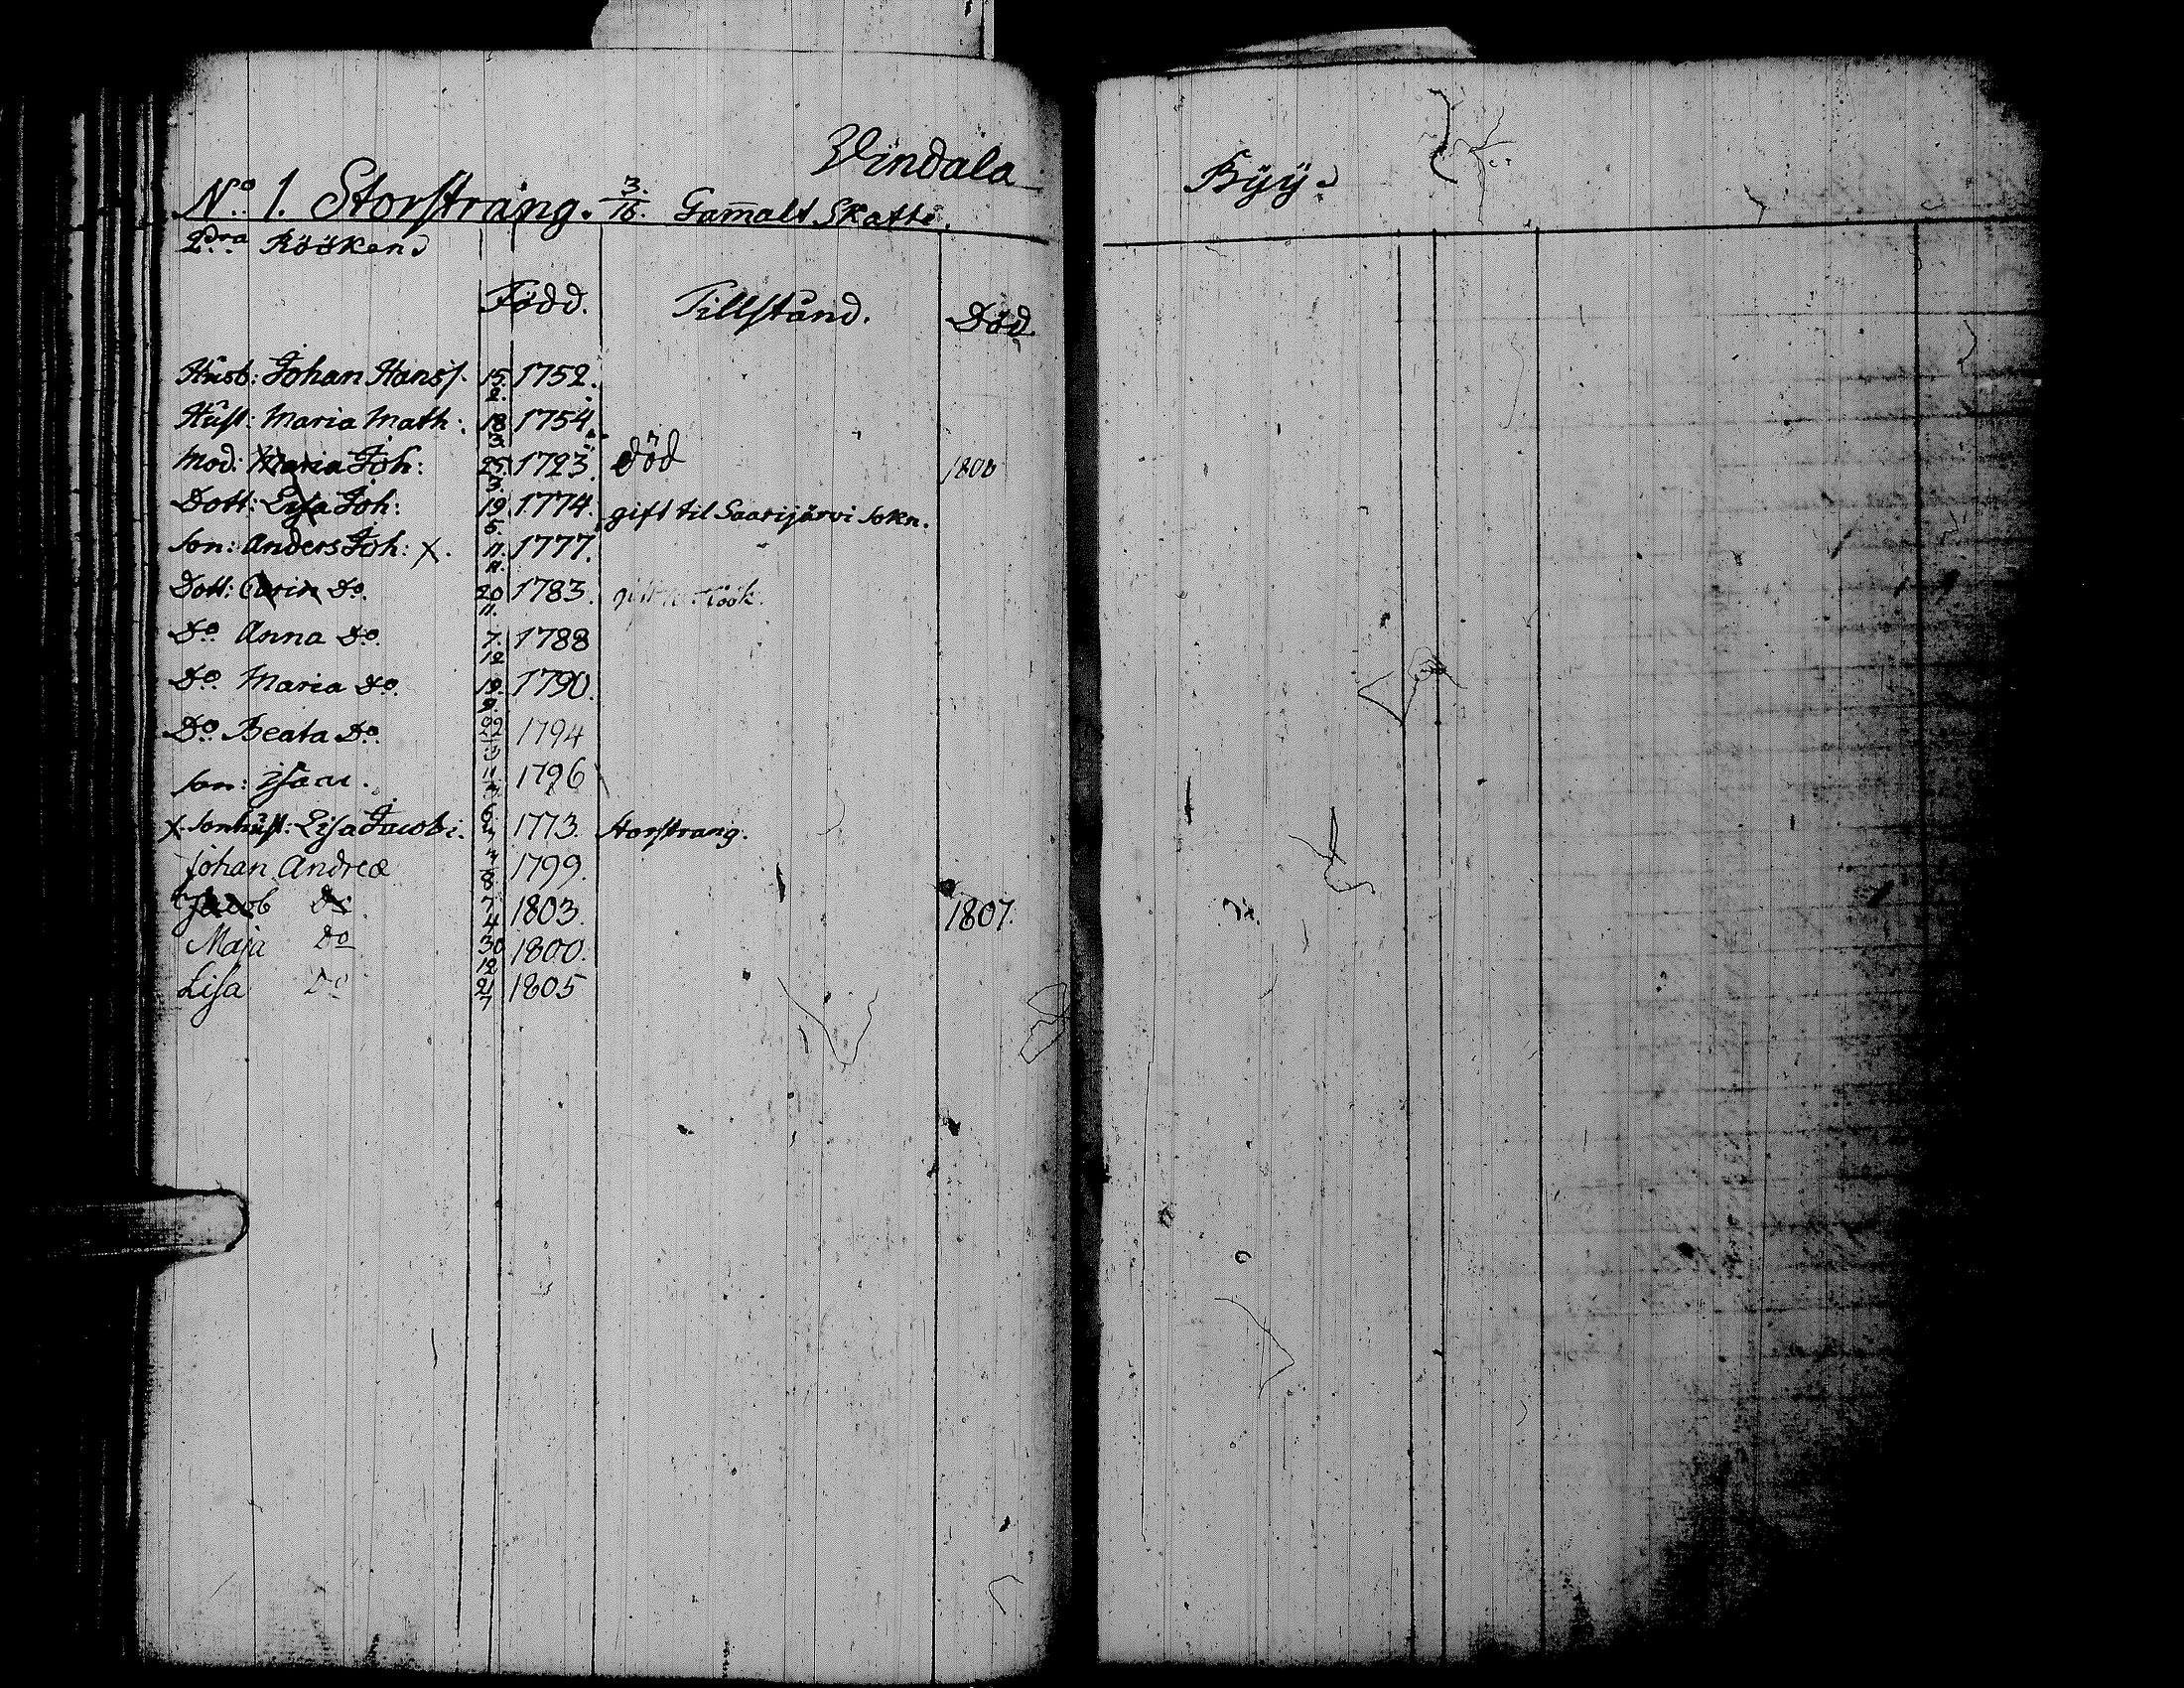 Vindala Byy
No. 1. Storstrång. 3/16. Gam̅alt Skatte.
2dra Rööken
Född. Tillstånd. Död.
Husb: Johan Hanss. 15/2. 1752.
Hust: Maria Math: 18/3. 1754.
Mod: Maria Joh: 25/3. 1723 död 1808
Dott: Lisa Joh: 19/5. 1774. gift til Saarijärvi Sokn.
Son: Anders Joh: X. 11/11. 1777.
Dott: Carin Do. 20/11. 1783. gift
Do Anna Do. 7/12 1788
Do Maria Do. 19/9. 1790.
Do Beata Do. 22/3 1794
Son: Isaac. 11/3. 1796
X. Sonhust: Lisa Jacobi. 6/3 1773. Storstrang.
Johan Andreæ 3/8 1799.
Jacob Do 7/4 1803. 1807.
Maja Do 30/12 1800.
Lisa Do 21/7 1805